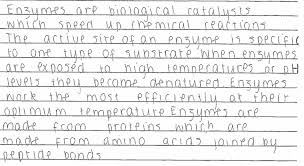 Enzymes are biological catalysts
which speed up chemical reactions
The active site of an enzyme is specific
to one type of substrate when enzymes
are exposed to high temperatures or pH
levels they become denatured. Enzymes
work the most efficiently at their
optimum temperature Enzymes are
made from proteins which are
made from amino acids joined by
peptide bonds